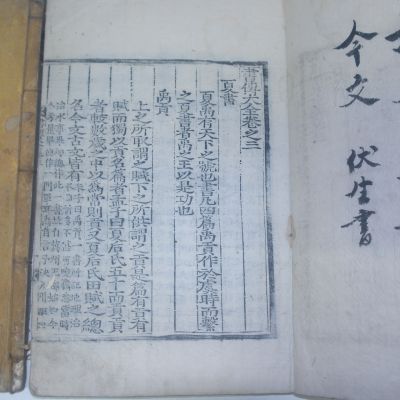 今文 伏生書
書傳大全卷之三
夏書
夏禹有天下之號也書凡四篇禹貢作於虞時而繫
之夏書者禹之王以是功也
禹貢
上之所取謂之賦下之所供謂之貢是篇有貢有
賦而獨以貢名篇者孟子曰夏后氏五十而貢貢
者較數歲之中以為常則貢又夏后氏田賦之總
名今文古文皆有